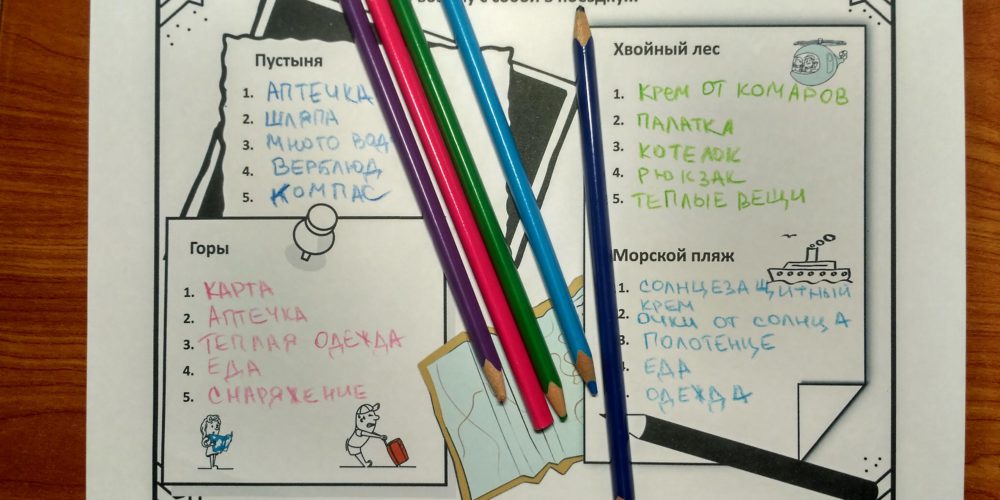 с собой в поездку...
Пустыня
1. АПТЕЧКА
2. ШЛЯПА
3. МНОГО ВОД
4. ВЕРБЛЮД
5. КОМПАС
Горы
1. КАРТА
2. АПТЕЧКА
3. ТЕПЛАЯ ОДЕЖДА
4. ЕДА
5. СНАРЯЖЕНИЕ
Хвойный лес
1. КРЕМ ОТ КОМАРОВ
2. ПАЛАТКА
3. КОТЕЛОК
4. РЮКЗАК
5. ТЕПЛЫЕ ВЕЩИ
Морской пляж
1. СОЛНЦЕЗАЩИТНЫЙ
КРЕМ
2. ОЧКИ ОТ СОЛНЦА
3. ПОЛОТЕНЦЕ
4. ЕДА
ОДЕЖДА